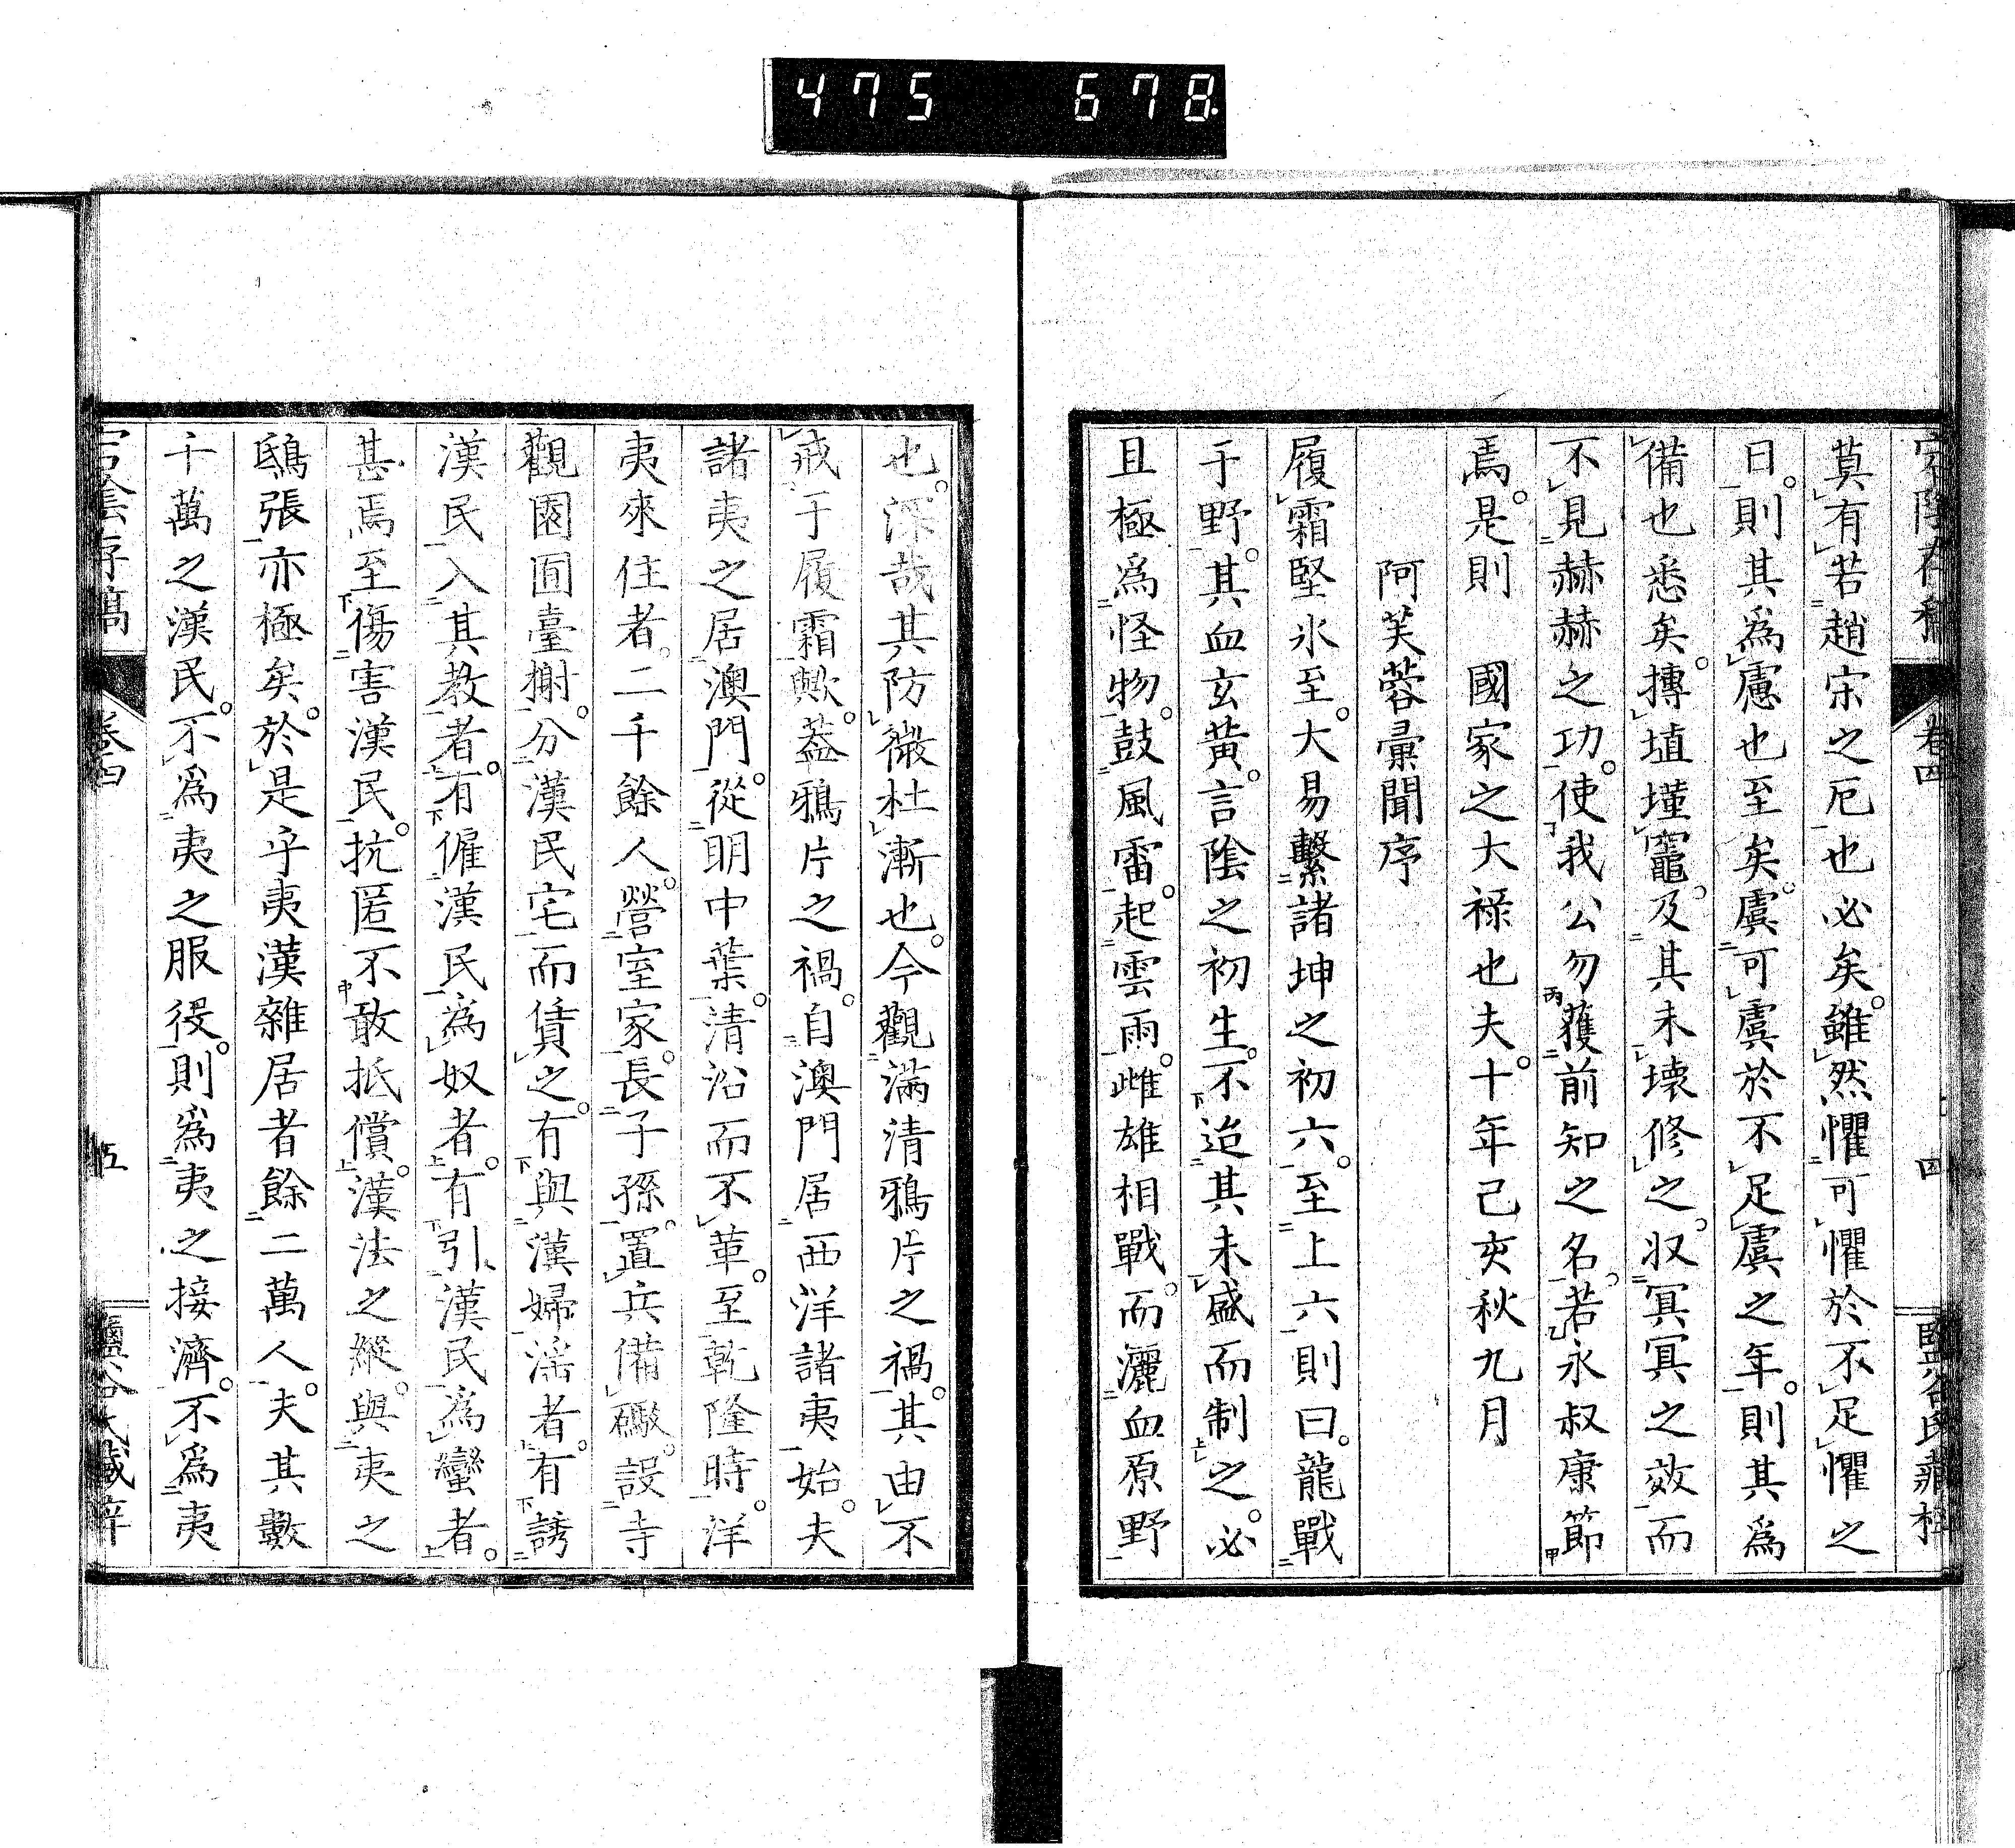 475 678
宕陰存稿 卷四 四 鹽谷氏藏梓
莫有若趙宋之厄也必矣。雖然懼可懼於不足懼之
日。則其爲慮也至矣。虞可虞於不足虞之年。則其爲
備也悉矣。摶埴墐竈。及其未壞修之。收冥冥之效而
不見赫赫之功。使我公勿獲前知之名。若永叔康節
焉。是則 國家之大祿也夫。十年己亥秋九月
阿芙蓉彙聞序
履霜堅氷至。大易繫諸坤之初六。至上六則曰。龍戰
于野。其血玄黃。言陰之初生。不迨其未盛而制之。必
且極爲怪物。鼓風雷。起雲雨。雌雄相戰。而灑血原野
也。深哉其防微杜漸也。今觀滿清鴉片之禍。其由不
戒于履霜歟。蓋鴉片之禍。自澳門居西洋諸夷始。夫
諸夷之居澳門。從明中葉。清沿而不革。至乾隆時。洋
夷來住者。二千餘人。營室家。長子孫。置兵備礮。設寺
觀園囿臺榭。分漢民宅而賃之。有與漢婦淫者。有誘
漢民入其教者。有傭漢民爲奴者。有引漢民爲蠻者。
甚焉至傷害漢民。抗匿不敢抵償。漢法之縱。與夷之
鴟張亦極矣。於是乎夷漢雜居者餘二萬人。夫其數
千萬之漢民。不爲夷之服役。則爲夷之接濟。不爲夷
宕陰存稿 卷四 五 鹽谷氏藏梓